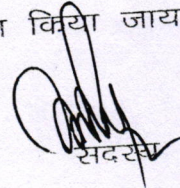 किया जाय
सदस्य